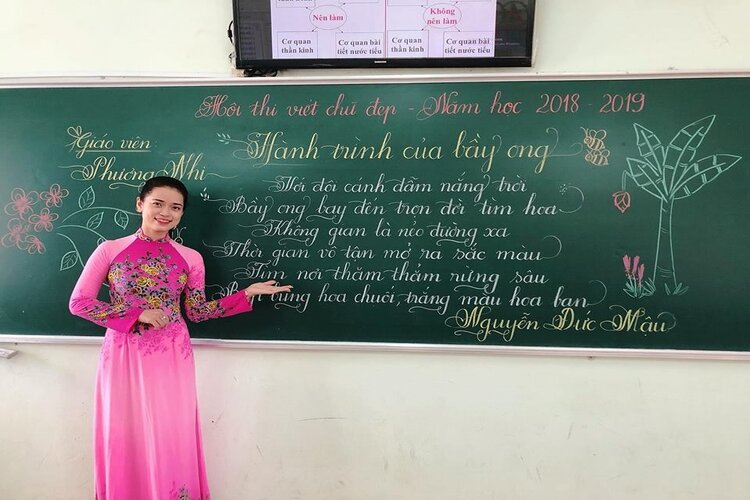 Nên làm
Không
nên làm
Cơ quan
thần kinh
Cơ quan bài
tiết nước tiểu
Cơ quan
thần kinh
Cơ quan bài
tiết nước tiểu
Hội thi viết chữ đẹp - Năm học 2018 - 2019
Giáo viên:
Phương Nhi
Hành trình của bầy ong
Với đôi cánh đẫm nắng trời
Bầy ong bay đến trọn đời tìm hoa
Không gian là nẻo đường xa
Thời gian vô tận mở ra sắc màu
Tìm nơi thăm thẳm rừng sâu
bùng hoa chuối, trắng màu hoa ban
Nguyễn Đức Mậu